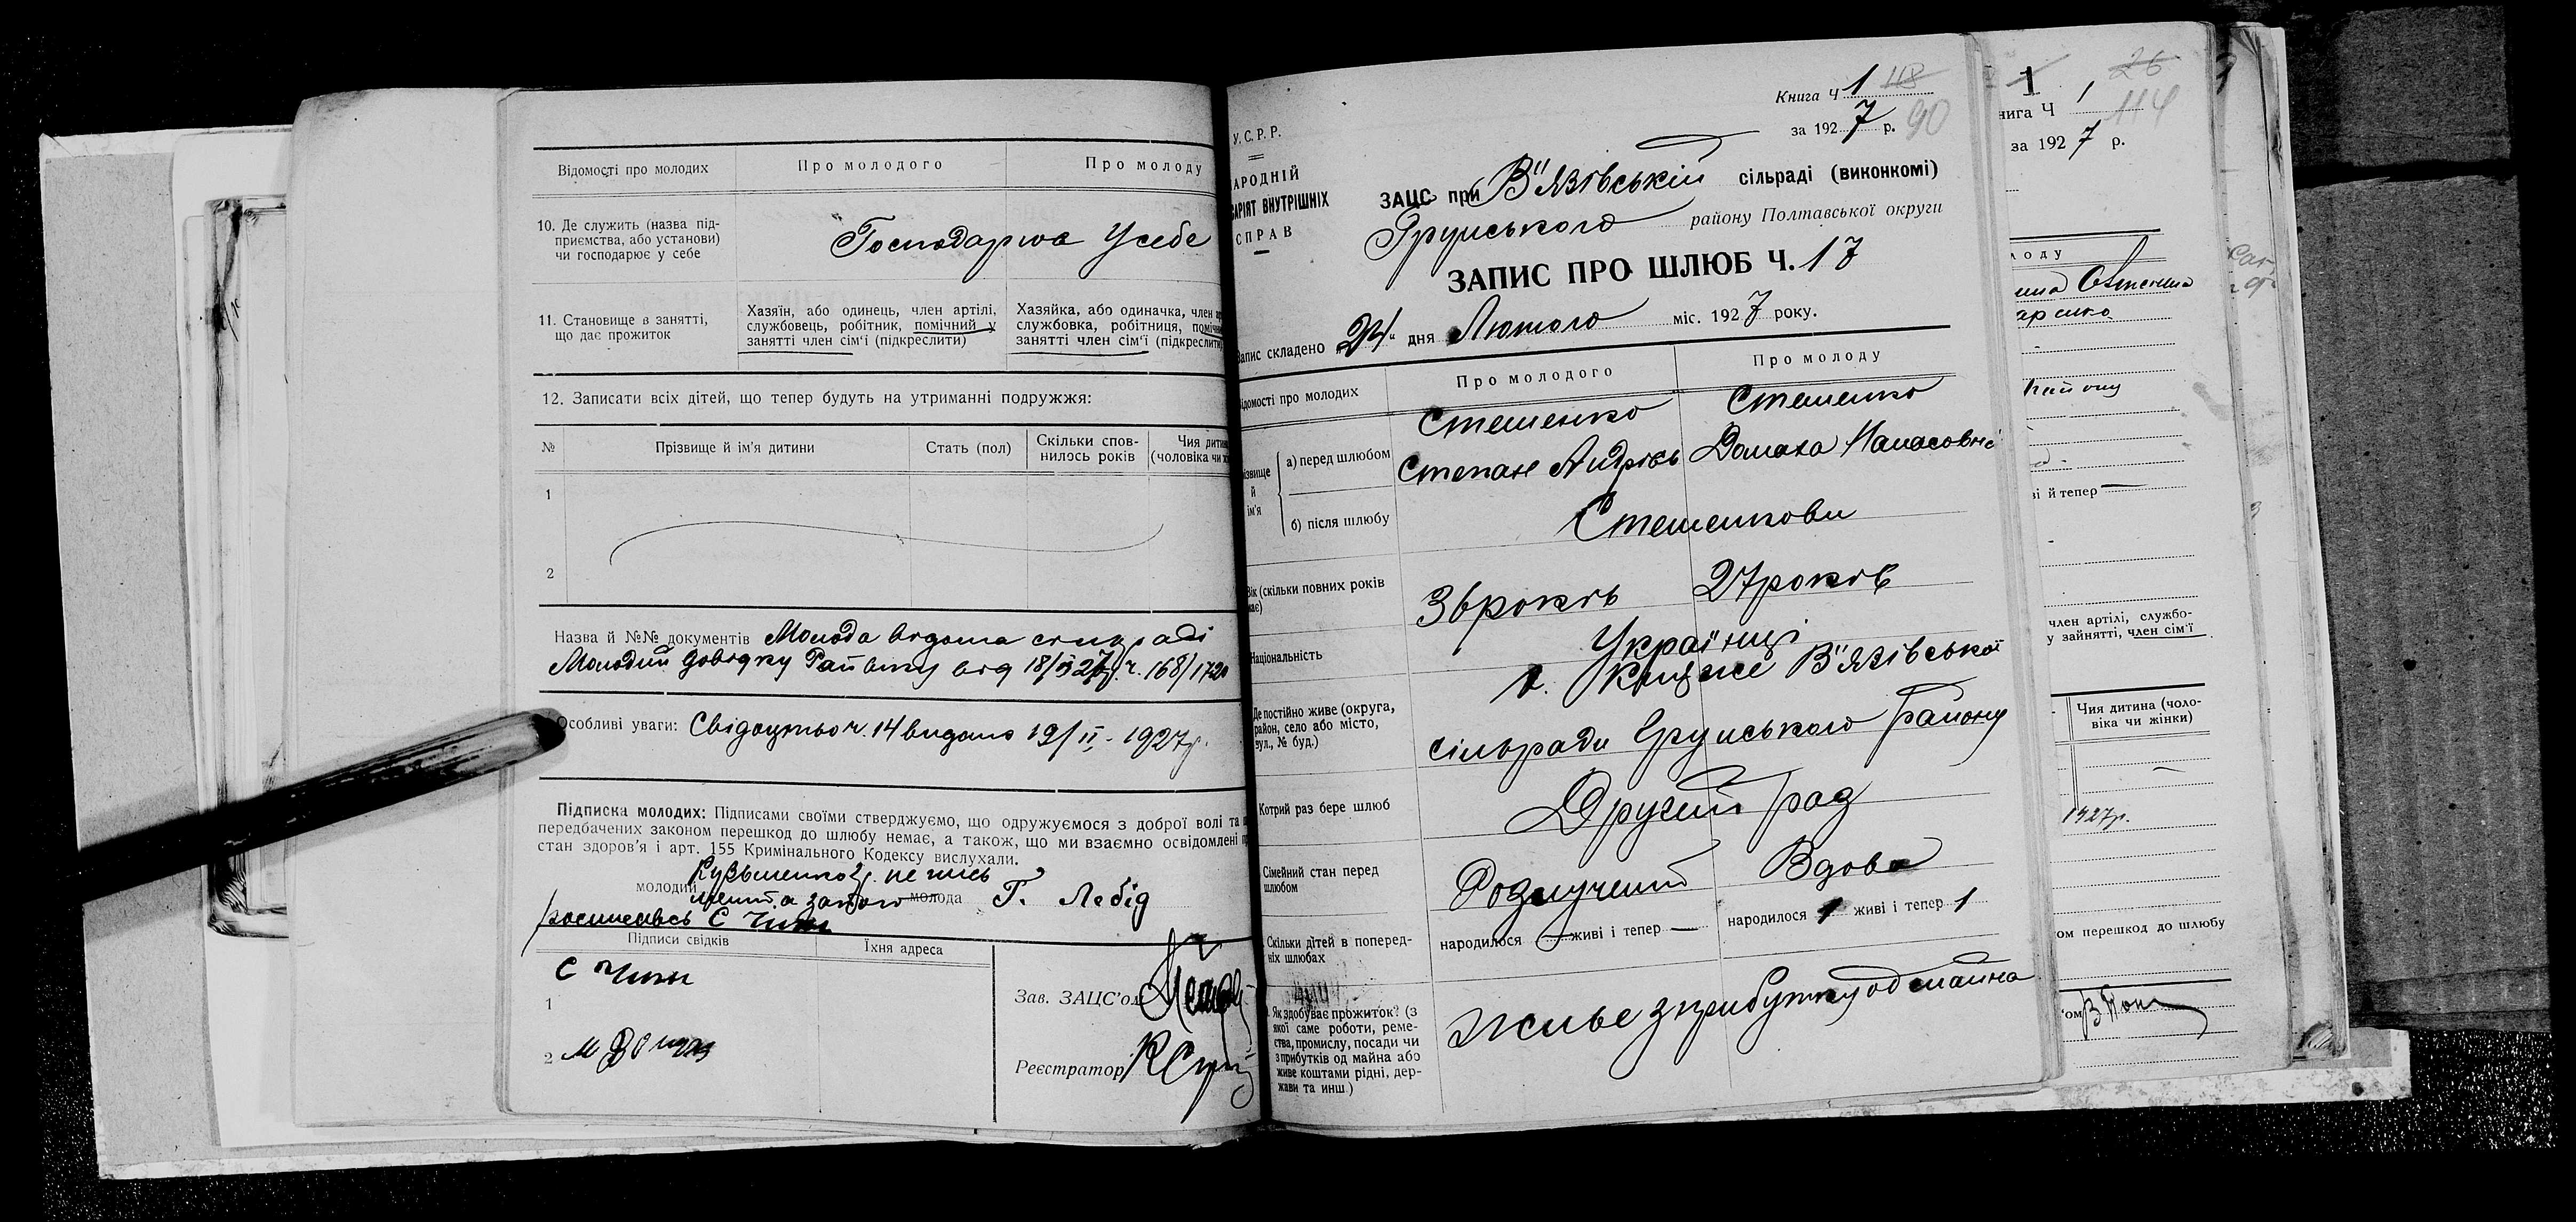 Відомості про молодих
Про молодого
Про молоду
10. Де служить (назва під-
приємства, або установи)
чи господарює у себе
Господарює у себе
11. Становище в занятті,
що дає прожиток
Хазяїн, або одинець, член артілі,
службовець, робітник, помічний у
занятті член сім'ї (підкреслити)
Хазяйка, або одиначка, член
службовка, робітниця,
занятті член сім'ї (підкреслити)
12. Записати всіх дітей, що тепер будуть на утриманні подружжя:
№
Прізвище й ім'я дитини
Стать (пол)
Скільки спов-
нилось років
Чия
(чоловіка чи
1
2
Назва й №№ документів Молода відома сільраді
Молодий довідку від 18/II 27р. ч. 168/
Особливі уваги: Свідоцтво ч. 14 видано 19/II - 1927р.
Підписка молодих: Підписами своїми стверджуємо, що одружуємося з доброї волі та
передбачених законом перешкод до шлюбу немає, а також, що ми взаємно освідомлені
стан здоров'я і арт. 155 Кримінального Кодексу вислухали.
Кузьменко
молодий
молода Г. Лебід
С
Підписи свідків
Їхня адреса
С
1
2 М
Зав. ЗАЦС'ом
Реєстратор
Книга Ч 1 118
за 1927 р. 90
У.С.Р.Р.
ВНУТРІШНІХ
СПРАВ
ЗАЦС при В"язівській сільраді (виконкомі)
Грунського району Полтавської округи
ЗАПИС ПРО ШЛЮБ Ч. 17
Запис складено „24" дня Лютого міс. 1927 року.
Відомості про молодих
Про молодого
Про молоду
Прізвище
й
ім'я
а) перед шлюбом
Стешенко
Степан Андрієв
Стешенко
Домаха Панасовна
б) після шлюбу
Стешенкови
Вік (скільки повних років
має)
36 років
27 років
Національність
Українці
Де постійно живе (округа,
район, село або місто,
вул., № буд.)
х. В"язівської
сільради Грунського району
Котрий раз бере шлюб
Другий раз
Сімейний стан перед
шлюбом
Розлучений
Вдова
Скільки дітей в поперед-
ніх шлюбах
народилося — живі і тепер —
народилося 1 живі і тепер 1
Як здобуває прожиток? (з
якої саме роботи, реме-
ства, промислу, посади чи
з прибутків од майна або
живе коштами рідні, дер-
жави та инш.)
Живе з прибутку од майна
1
26
Книга Ч 1
114
за 1927 р.
й тепер —
член артілі, службо-
у зайнятті, член сім'ї
Чия дитина (чоло-
віка чи жінки)
1927р.
ом перешкод до шлюбу